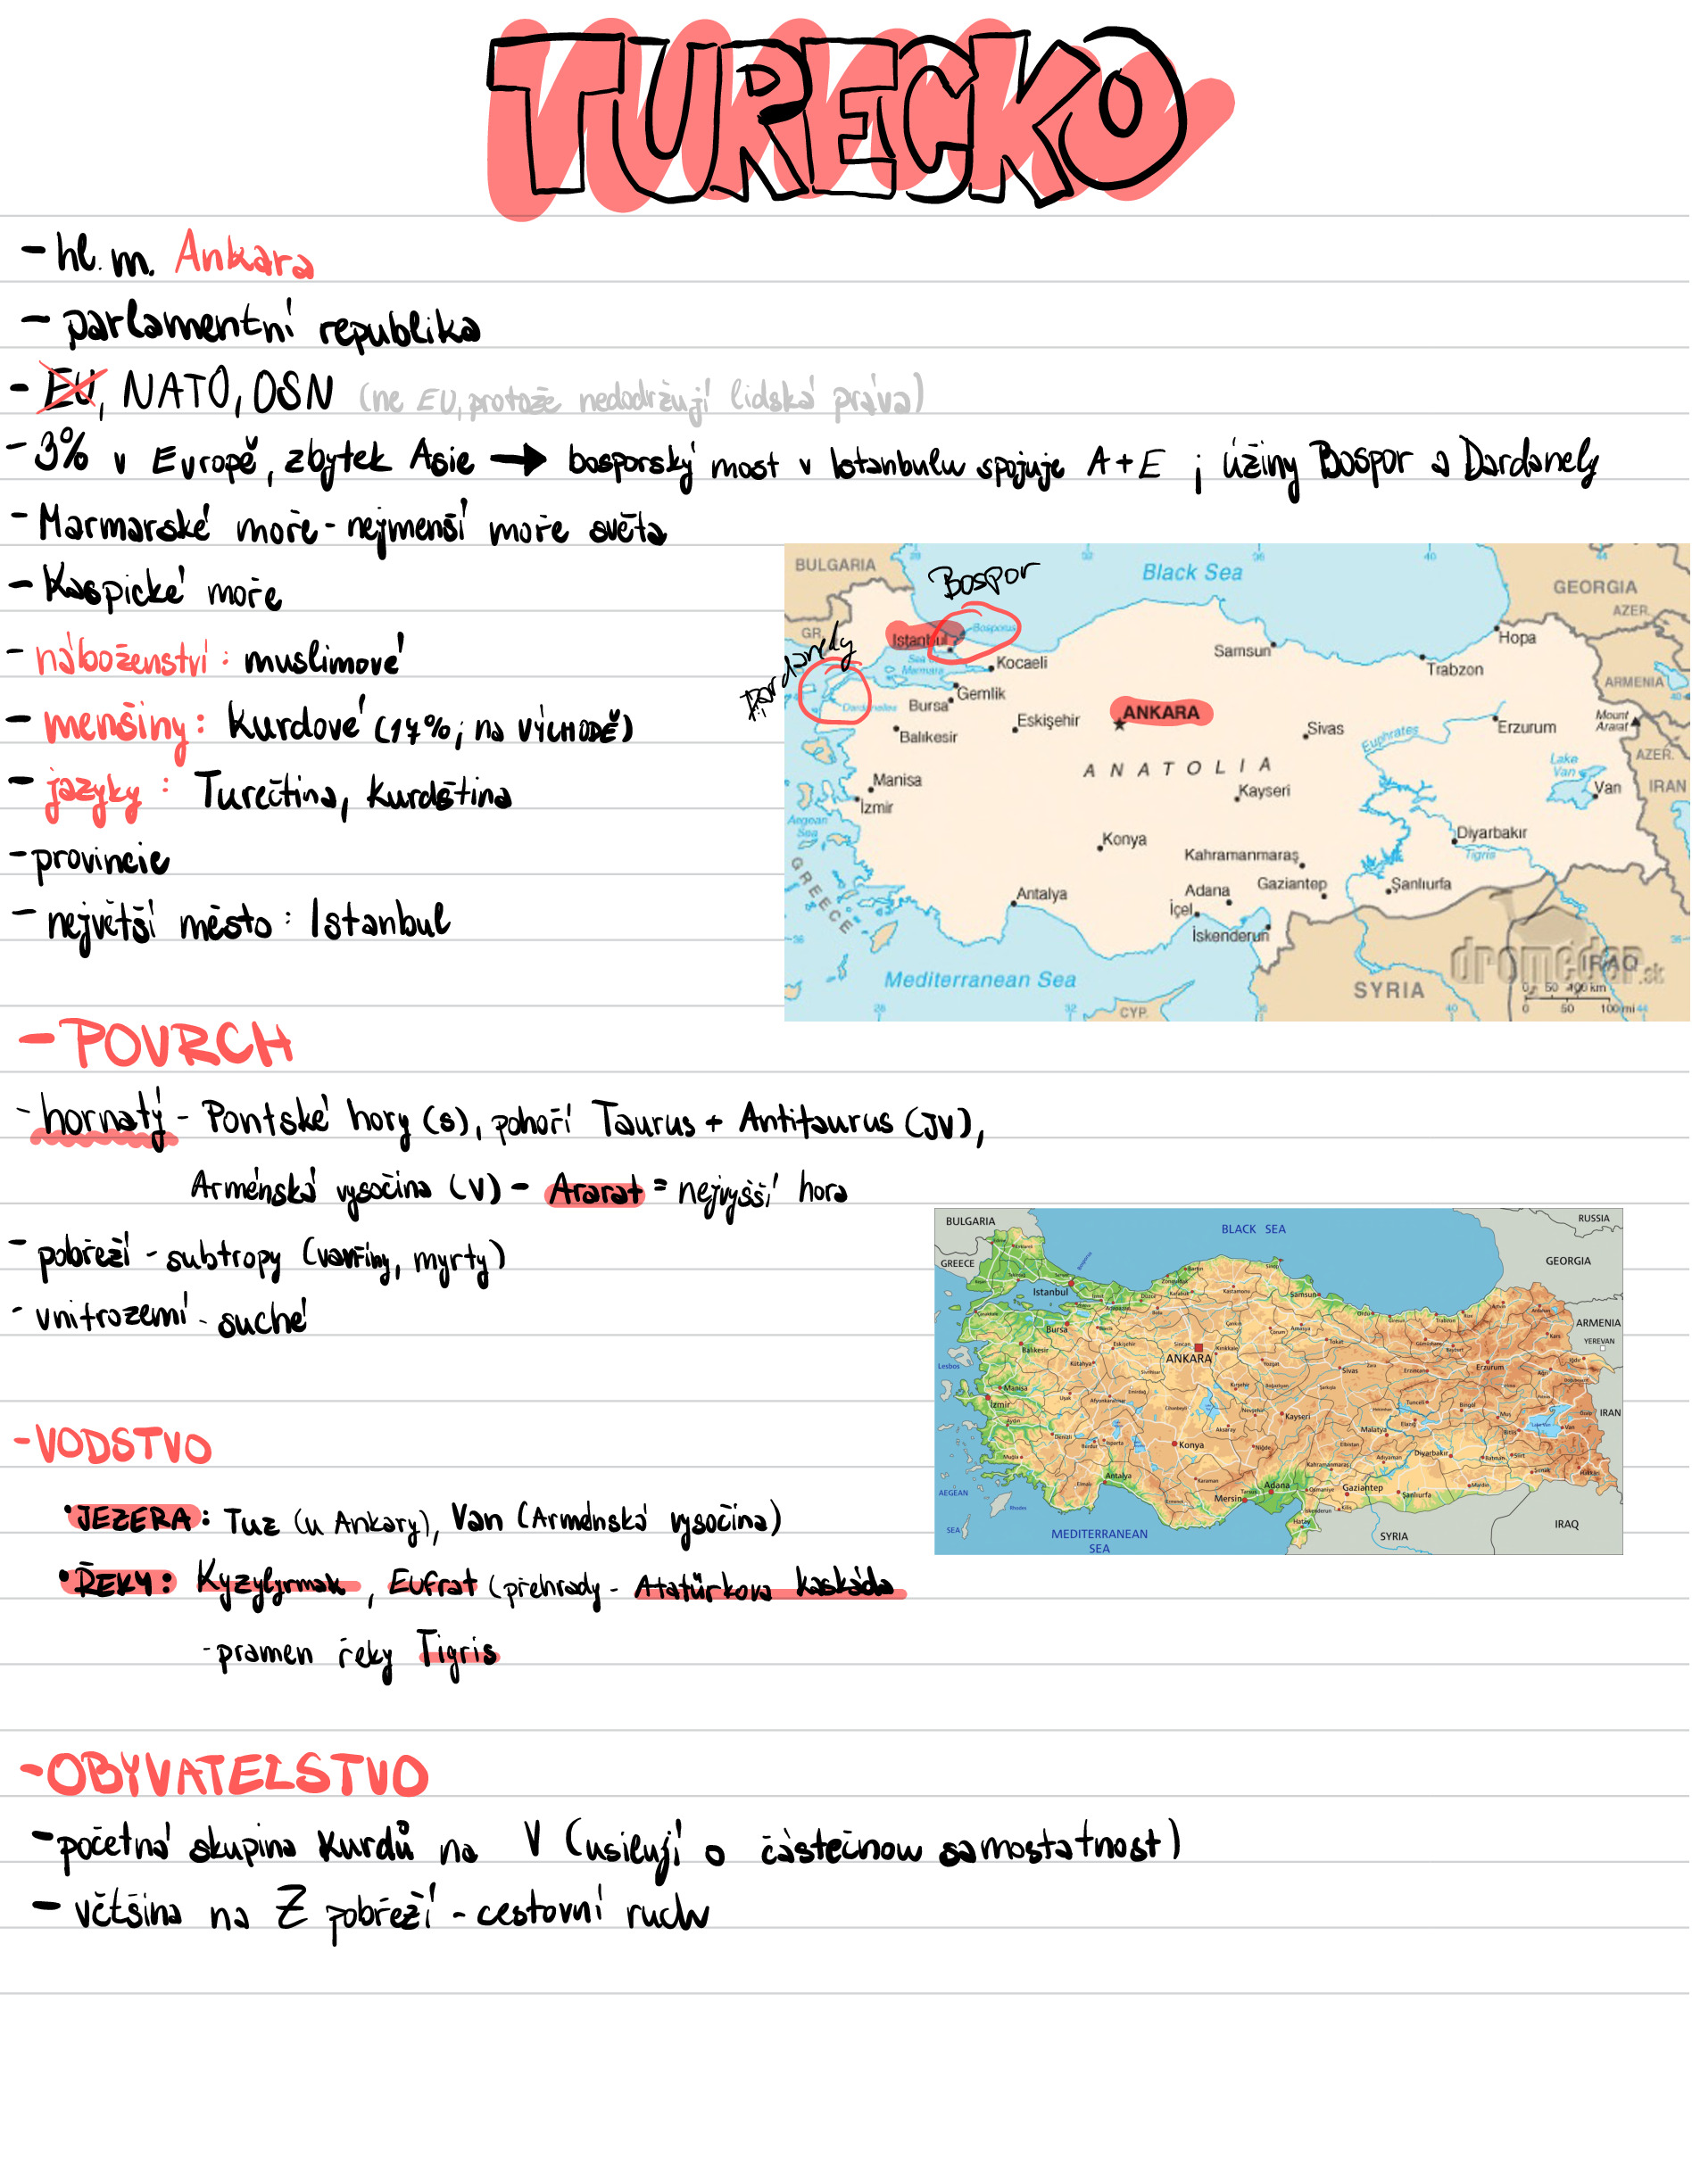 TURECKO
- hl. m. Ankara
- parlamentní republika
- EU, NATO, OSN (ne EU, protože nedodržují lidská práva)
- 3% v Evropě, zbytek Asie → bosporský most v Istanbulu spojuje A+E ; úžiny Bospor a Dardanely
- Marmarské moře - nejmenší moře světa
- Kaspické moře
- náboženství: muslimové
- menšiny: Kurdové (17%; na VÝCHODĚ)
- jazyky: Turečtina, kurdština
- provincie
- největší město: Istanbul
Bospor
Dardanely
BULGARIA
Black Sea
GEORGIA
AZER.
GR.
Istanbul
Bosporus
Hopa
Sea of Marmara
Kocaeli
Samsun
Trabzon
ARMENIA
Gemlik
Dardanelles
Bursa
ANKARA
Eskişehir
Sivas
Euphrates
Erzurum
Mount Ararat
Balıkesir
AZER.
ANATOLIA
Lake Van
Van
IRAN
Manisa
İzmir
Kayseri
Aegean Sea
Konya
Diyarbakır
Tigris
Kahramanmaraş
GREECE
Antalya
Adana
Gaziantep
Şanlıurfa
İçel
İskenderun
Mediterranean Sea
SYRIA
IRAQ
dromedar.sk
CYP.
0 50 100 km
0 50 100 mi
- POVRCH
- hornatý - Pontské hory (S), pohoří Taurus + Antitaurus (JV),
Arménská vysočina (V) - Ararat = nejvyšší hora
- pobřeží - subtropy (vavříny, myrty)
- vnitrozemí - suché
BULGARIA
BLACK SEA
RUSSIA
GREECE
GEORGIA
Istanbul
Samsun
ARMENIA
YEREVAN
Bursa
ANKARA
Balıkesir
Erzurum
Lesbos
Sivas
Manisa
Izmir
IRAN
Kayseri
Malatya
Konya
Diyarbakır
Antalya
Adana
Gaziantep
Mersin
Şanlıurfa
AEGEAN
SEA
Hatay
MEDITERRANEAN
SEA
SYRIA
IRAQ
- VODSTVO
• JEZERA: Tuz (u Ankary), Van (Arménská vysočina)
• ŘEKY: Kyzylyrmak, Eufrat (přehrady - Atatürkova kaskáda
- pramen řeky Tigris
- OBYVATELSTVO
- početná skupina Kurdů na V (usilují o částečnou samostatnost)
- většina na Z pobřeží - cestovní ruch